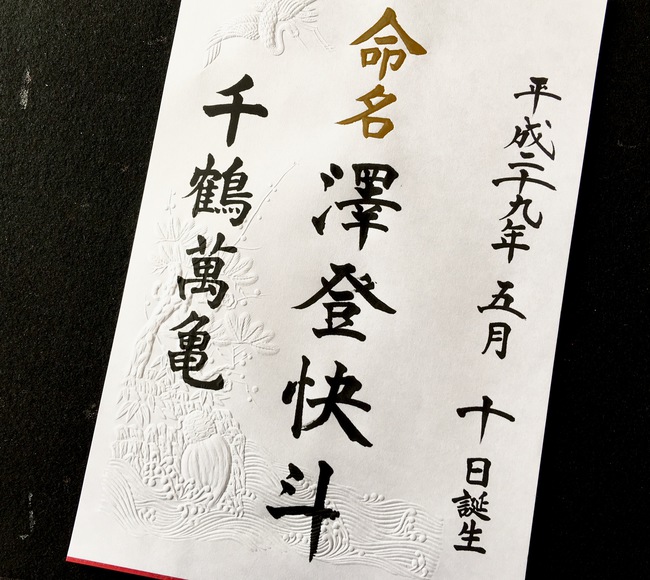 平成二十九年 五月 十日誕生
命名
澤登快斗
千鶴萬亀